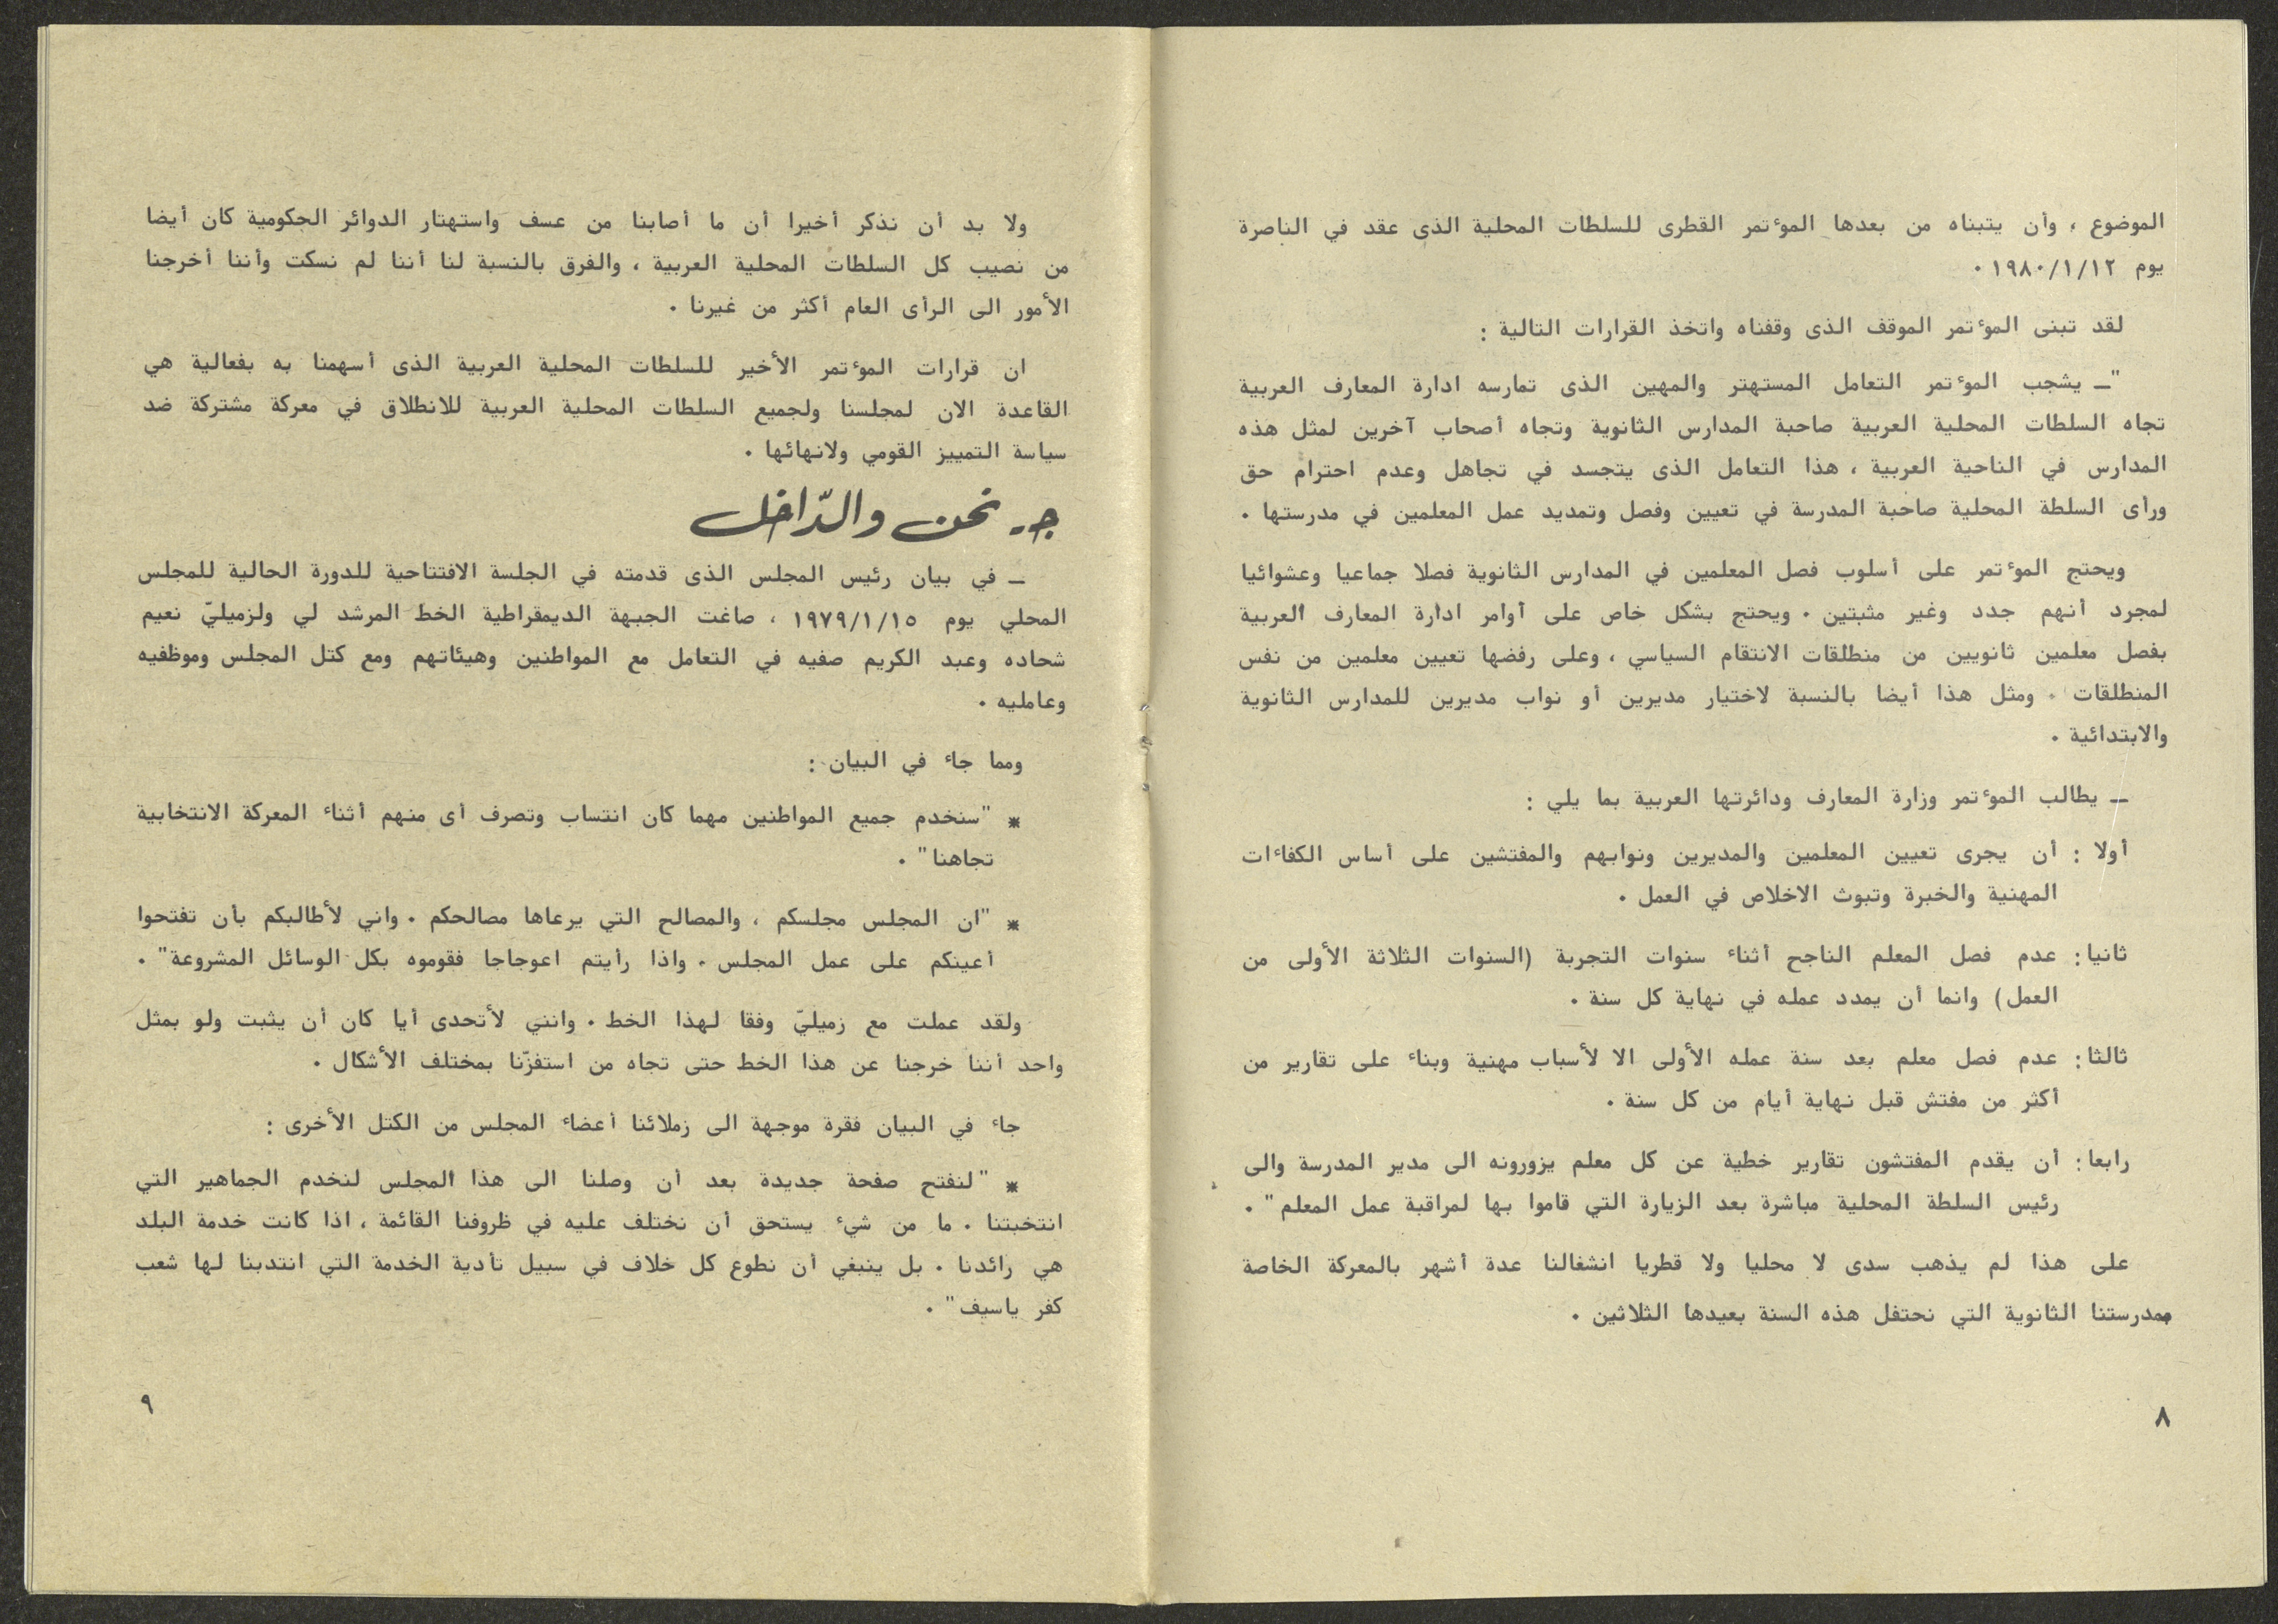 الموضوع ، وأن يتبناه من بعدها المؤتمر القطرى للسلطات المحلية الذى عقد في الناصرة
يوم ١٩٨٠/١/١٢ .
لقد تبنى المؤتمر الموقف الذى وقفناه واتخذ القرارات التالية :
"ــ يشجب المؤتمر التعامل المستهتر والمهين الذى تمارسه ادارة المعارف العربية
تجاه السلطات المحلية العربية صاحبة المدارس الثانوية وتجاه أصحاب آخرين لمثل هذه
المدارس في الناحية العربية ، هذا التعامل الذى يتجسد في تجاهل وعدم احترام حق
ورأى السلطة المحلية صاحبة المدرسة في تعيين وفصل وتمديد عمل المعلمين في مدرستها .
ويحتج المؤتمر على أسلوب فصل المعلمين في المدارس الثانوية فصلا جماعيا وعشوائيا
لمجرد أنهم جدد وغير مثبتين . ويحتج بشكل خاص على أوامر ادارة المعارف العربية
بفصل معلمين ثانويين من منطلقات الانتقام السياسي ، وعلى رفضها تعيين معلمين من نفس
المنطلقات . ومثل هذا أيضا بالنسبة لاختيار مديرين أو نواب مديرين للمدارس الثانوية
والابتدائية .
ــ يطالب المؤتمر وزارة المعارف ودائرتها العربية بما يلي :
أولا : أن يجرى تعيين المعلمين والمديرين ونوابهم والمفتشين على أساس الكفاءات
المهنية والخبرة وتبوث الاخلاص في العمل .
ثانيا : عدم فصل المعلم الناجح أثناء سنوات التجربة (السنوات الثلاثة الأولى من
العمل) وانما أن يمدد عمله في نهاية كل سنة .
ثالثا : عدم فصل معلم بعد سنة عمله الأولى الا لأسباب مهنية وبناء على تقارير من
أكثر من مفتش قبل نهاية أيام من كل سنة .
رابعا : أن يقدم المفتشون تقارير خطية عن كل معلم يزورونه الى مدير المدرسة والى
رئيس السلطة المحلية مباشرة بعد الزيارة التي قاموا بها لمراقبة عمل المعلم" .
على هذا لم يذهب سدى لا محليا ولا قطريا انشغالنا عدة أشهر بالمعركة الخاصة
بمدرستنا الثانوية التي نحتفل هذه السنة بعيدها الثلاثين .
٨
ولا بد أن نذكر أخيرا أن ما أصابنا من عسف واستهتار الدوائر الحكومية كان أيضا
من نصيب كل السلطات المحلية العربية ، والفرق بالنسبة لنا أننا لم نسكت وأننا أخرجنا
الأمور الى الرأى العام أكثر من غيرنا .
ان قرارات المؤتمر الأخير للسلطات المحلية العربية الذى أسهمنا به بفعالية هي
القاعدة الان لمجلسنا ولجميع السلطات المحلية العربية للانطلاق في معركة مشتركة ضد
سياسة التمييز القومي ولانهائها .
ج - نحن والدّاخل
ــ في بيان رئيس المجلس الذى قدمته في الجلسة الافتتاحية للدورة الحالية للمجلس
المحلي يوم ١٩٧٩/١/١٥ ، صاغت الجبهة الديمقراطية الخط المرشد لي ولزميليّ نعيم
شحاده وعبد الكريم صفيه في التعامل مع المواطنين وهيئاتهم ومع كتل المجلس وموظفيه
وعامليه .
ومما جاء في البيان :
* "سنخدم جميع المواطنين مهما كان انتساب وتصرف أى منهم أثناء المعركة الانتخابية
تجاهنا" .
* "ان المجلس مجلسكم ، والمصالح التي يرعاها مصالحكم . واني لأطالبكم بأن تفتحوا
أعينكم على عمل المجلس . واذا رأيتم اعوجاجا فقوموه بكل الوسائل المشروعة" .
ولقد عملت مع زميليّ وفقا لهذا الخط . وانني لأتحدى أيا كان أن يثبت ولو بمثل
واحد أننا خرجنا عن هذا الخط حتى تجاه من استفزّنا بمختلف الأشكال .
جاء في البيان فقرة موجهة الى زملائنا أعضاء المجلس من الكتل الأخرى :
* "لنفتح صفحة جديدة بعد أن وصلنا الى هذا المجلس لنخدم الجماهير التي
انتخبتنا . ما من شيء يستحق أن نختلف عليه في ظروفنا القائمة ، اذا كانت خدمة البلد
هي رائدنا . بل ينبغي أن نطوع كل خلاف في سبيل تأدية الخدمة التي انتدبنا لها شعب
كفر ياسيف" .
٩